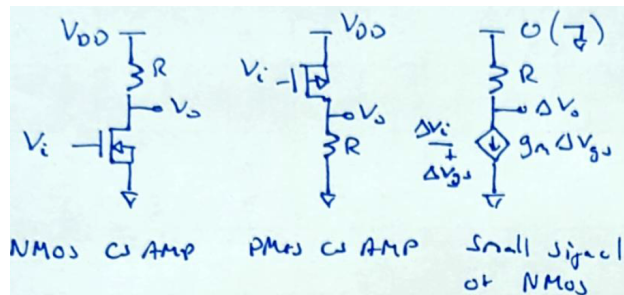 V_DD
R
V_o
V_i
NMOS CS AMP
V_DD
V_i
V_o
R
PMOS CS AMP
0 (⏚)
R
ΔV_o
ΔV_i
+
ΔV_gs
g_m ΔV_gs
Small signal
of NMOS